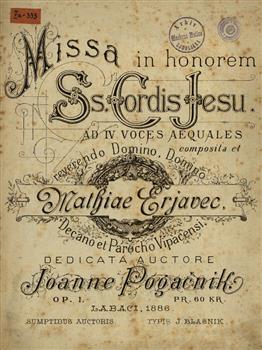 Missa in honorem
Ss. Cordis Jesu.
AD IV VOCES AEQUALES
composita et
reverendo Domino, Domino
Mathiae Erjavec.
Decano et Parocho Vipacensi
DEDICATA AUCTORE
Joanne Pogačnik
OP. 1. PR. 60 KR.
LABACI, 1886
SUMPTIBUS AUCTORIS TYPIS J. BLASNIK